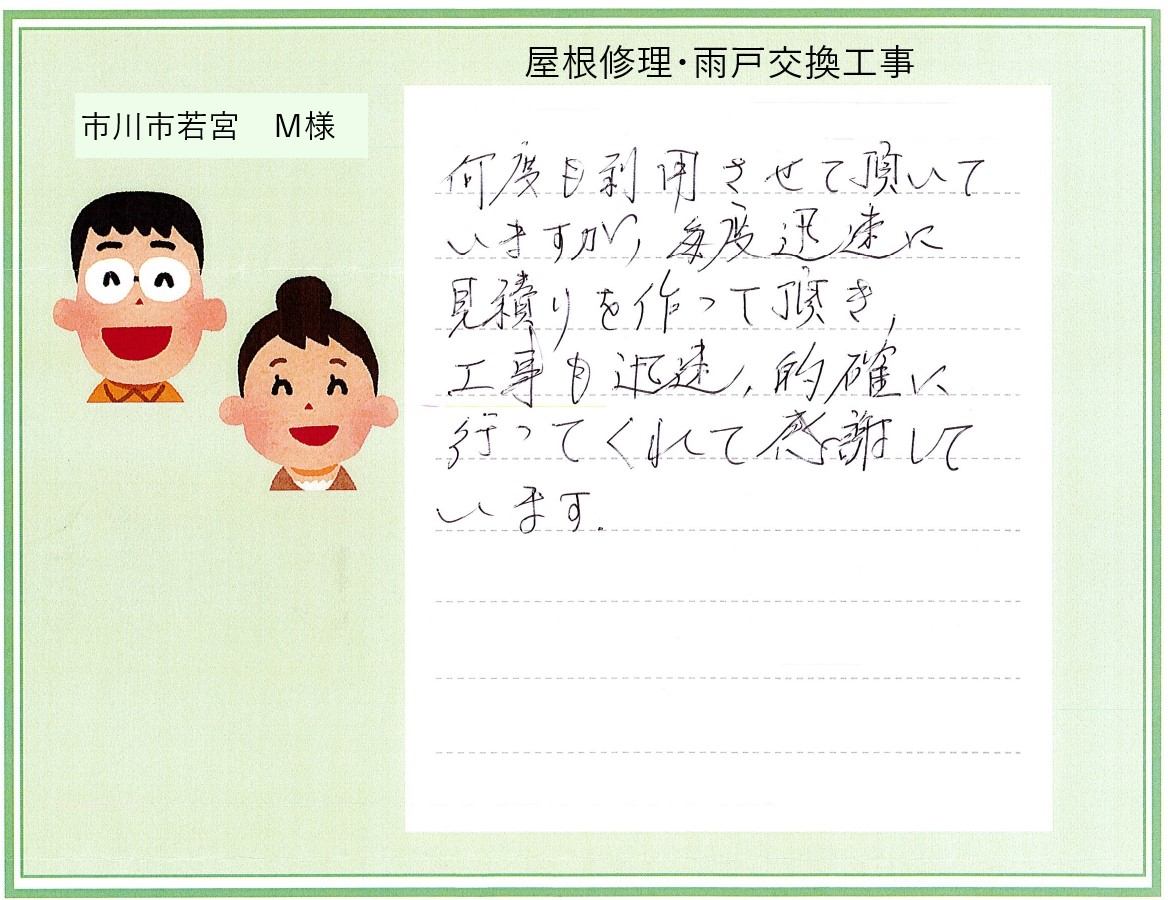 屋根修理・雨戸交換工事
市川市若宮　M様
何度も利用させて頂いて
いますが、毎度迅速に
見積りを作って頂き、
工事も迅速、的確に
行ってくれて感謝して
います.